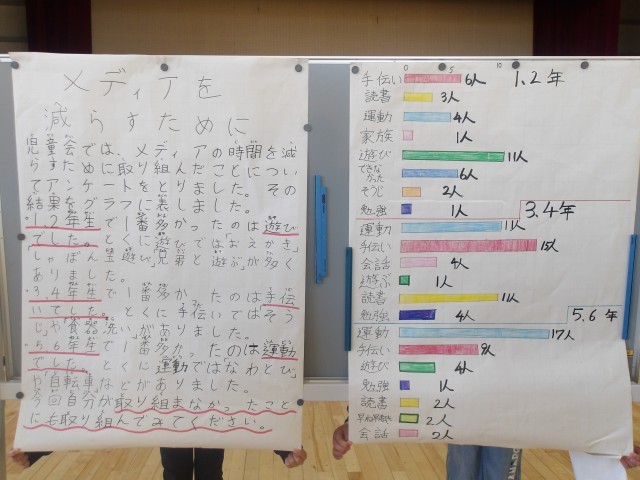 メディアを
減らすために
児童会では、メディアの時間を減
らすために取り組んだことについ
てアンケートをとりました。その
結果をグラフに表しました。
・1,2年生で1番多かったのは遊び
でした。とくに遊びでは「おえかき」
「しゃぼん玉遊び」「兄弟と遊ぶ」が多く
ありました。
・3,4年生で1番多かったのは手伝
いでした。とくに手伝いではそう
じや「食器洗い」がありました。
・5 6年生で1番多かったのは運動
でした。とくに運動では「なわとび」
や「自転車」などがありました。
今回自分が取り組まなかったこと
にも取り組んでみてください。
0 5 10
1,2年
手伝い 6人
読書 3人
運動 4人
家族 1人
遊び 11人
できなかった 6人
そうじ 2人
勉強 1人
3,4年
運動 11人
手伝い
会話 4人
遊ぶ 1人
読書 11人
勉強 4人
5,6年
運動 17人
手伝い 9人
遊び 4人
勉強 1人
読書 2人
2人
会話 2人